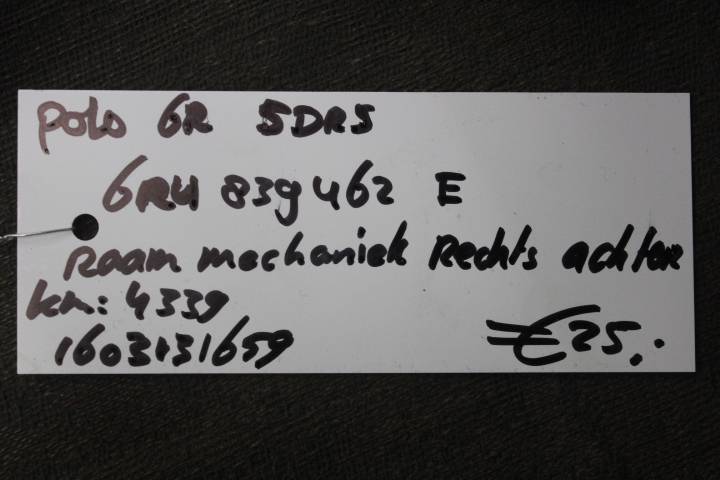 Polo 6R 5DRS
6R4 839 462 E
Raam mechaniek Rechts achter
km: 4339
1603131659 €25,-